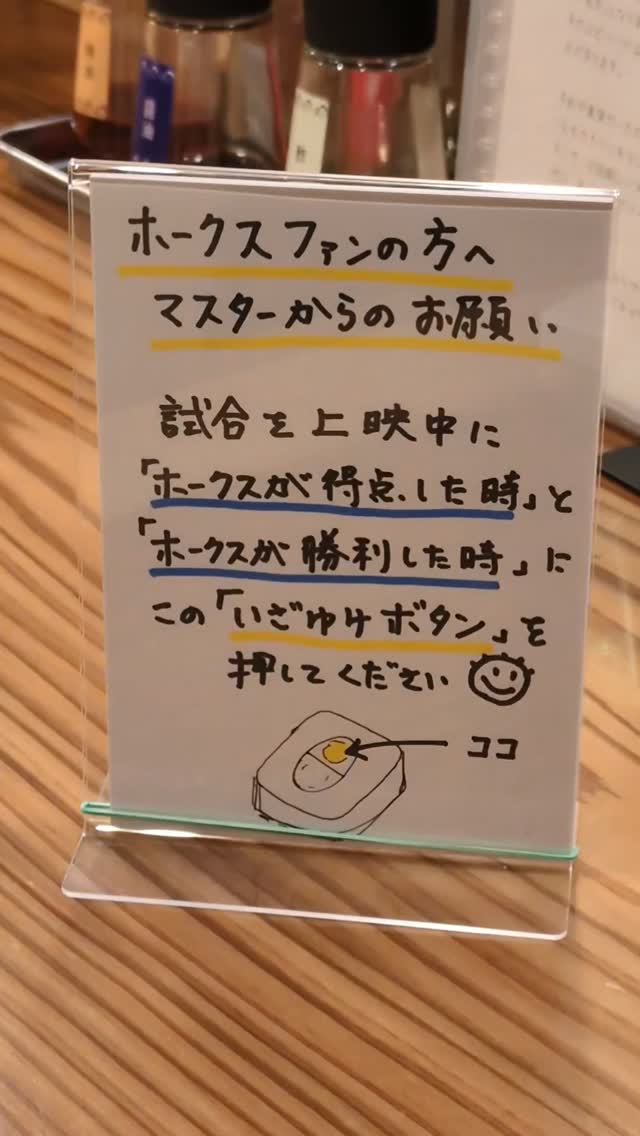 ホークスファンの方へ
マスターからのお願い
試合を上映中に
「ホークスが得点した時」と
「ホークスが勝利した時」に
この「いざゆけボタン」を
押してください
ココ
醤油